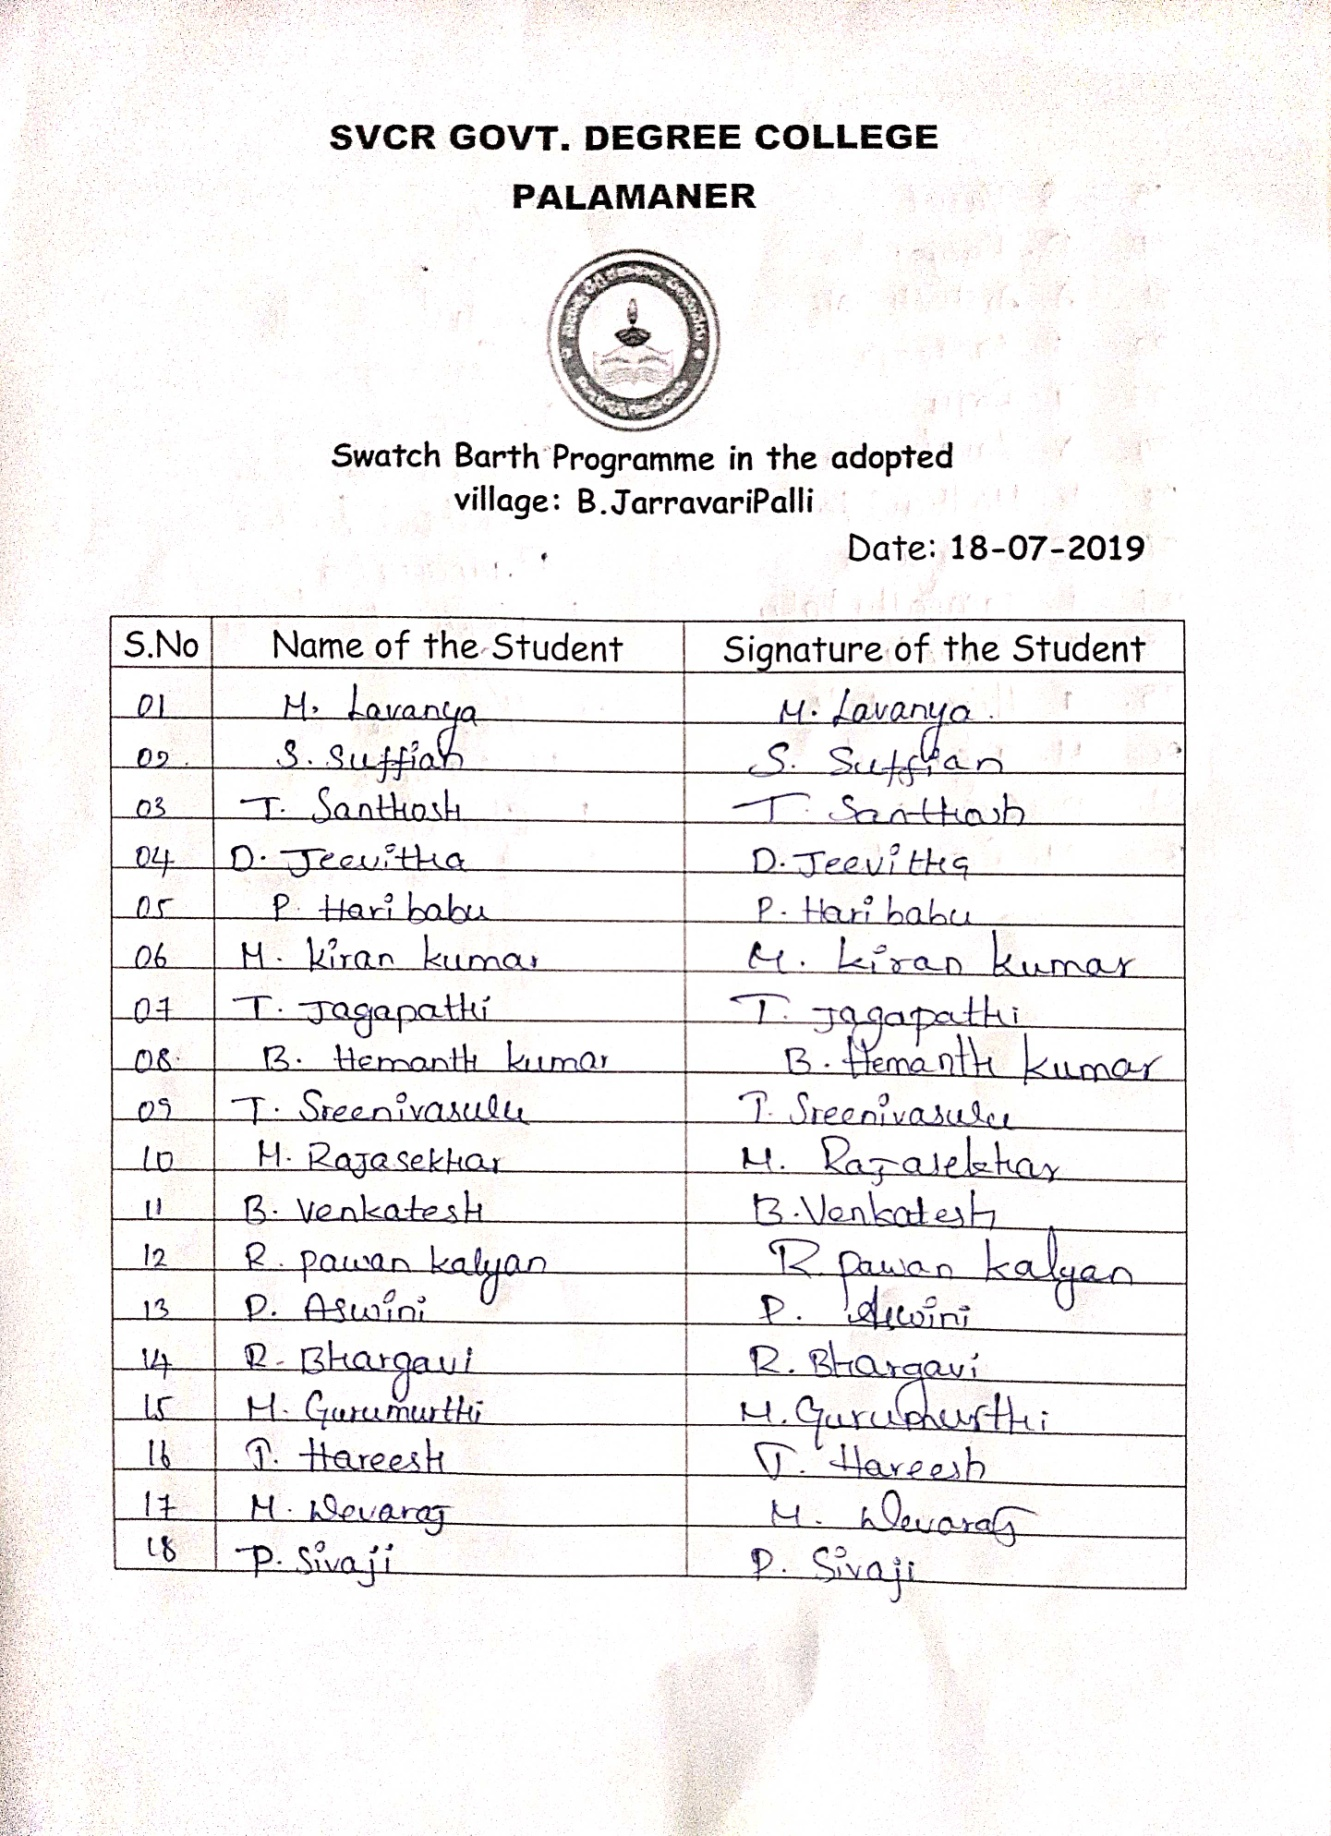 SVCR GOVT. DEGREE COLLEGE
PALAMANER
Swatch Barth Programme in the adopted
village: B.JarravariPalli
Date: 18-07-2019
S.No Name of the Student Signature of the Student
01 M. Lavanya M. Lavanya.
02. S. Suffian S. Suffian
03 T. Santhosh T. Santhosh
04 D. Jeevitha D. Jeevitha
05 P. Hari babu P. Hari babu
06 M. kiran kumar M. kiran kumar
07 T. Jagapathi T. Jagapathi
08. B. Hemanth kumar B. Hemanth kumar
09 T. Sreenivasulu T. Sreenivasulu
10 M. Rajasekhar M. Rajasekhar
11 B. Venkatesh B. Venkatesh
12 R. pawan kalyan R. pawan kalyan
13 P. Aswini P. Aswini
14 R. Bhargavi R. Bhargavi
15 M. Gurumurthi M. Gurumurthi
16 T. Hareesh T. Hareesh
17 M. Devaraj M. Devaraj
18 P. Sivaji P. Sivaji